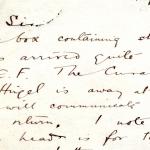 Sir
box containing
arrived quite
E. F. The Cura
Hügel is away at
will communicate
return. I note
head is for t